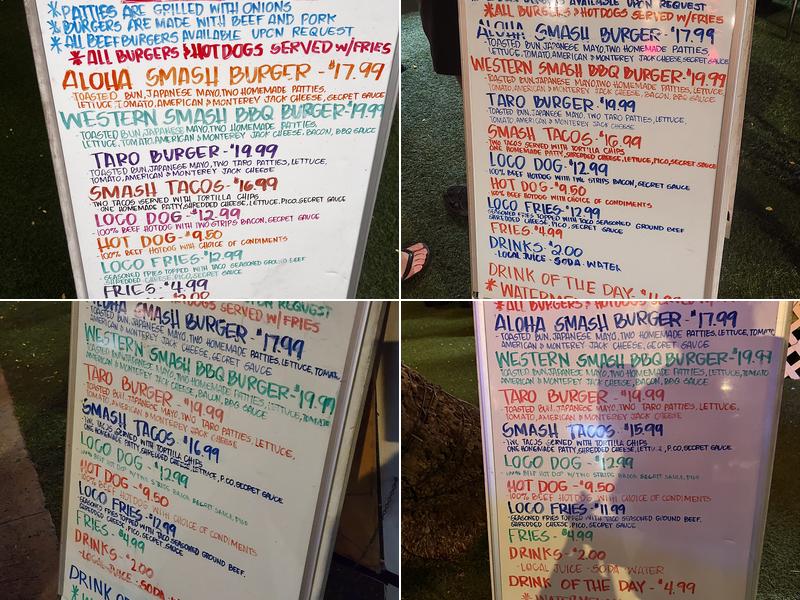 *PATTIES ARE GRILLED WITH ONIONS
*BURGERS ARE MADE WITH BEEF AND PORK
*ALL BEEF BURGERS AVAILABLE UPON REQUEST
*ALL BURGERS & HOTDOGS SERVED W/FRIES
ALOHA SMASH BURGER - $17.99
-TOASTED BUN, JAPANESE MAYO, TWO HOMEMADE PATTIES,
LETTUCE, TOMATO, AMERICAN & MONTEREY JACK CHEESE, SECRET SAUCE
WESTERN SMASH BBQ BURGER-$19.99
-TOASTED BUN, JAPANESE MAYO, TWO HOMEMADE PATTIES,
LETTUCE, TOMATO, AMERICAN & MONTEREY JACK CHEESE, BACON, BBQ SAUCE
TARO BURGER-$19.99
-TOASTED BUN, JAPANESE MAYO, TWO TARO PATTIES, LETTUCE,
TOMATO, AMERICAN & MONTEREY JACK CHEESE
SMASH TACOS-$16.99
-TWO TACOS SERVED WITH TORTILLA CHIPS
ONE HOMEMADE PATTY, SHREDDED CHEESE, LETTUCE, PICO, SECRET SAUCE
LOCO DOG-$12.99
-100% BEEF HOTDOG WITH TWO STRIPS BACON, SECRET SAUCE
HOT DOG-$9.50
-100% BEEF HOTDOG WITH CHOICE OF CONDIMENTS
LOCO FRIES-$12.99
-SEASONED FRIES TOPPED WITH TACO SEASONED GROUND BEEF
SHREDDED CHEESE, PICO, SECRET SAUCE
FRIES-$4.99
$2.00
AVAILABLE UPON REQUEST
*ALL BURGERS & HOTDOGS SERVED W/FRIES
ALOHA SMASH BURGER-$17.99
-TOASTED BUN, JAPANESE MAYO, TWO HOMEMADE PATTIES,
LETTUCE, TOMATO, AMERICAN & MONTEREY JACK CHEESE, SECRET SAUCE
WESTERN SMASH BBQ BURGER-$19.99
-TOASTED BUN, JAPANESE MAYO, TWO HOMEMADE PATTIES,
LETTUCE, TOMATO, AMERICAN & MONTEREY JACK CHEESE, BACON, BBQ SAUCE
TARO BURGER-$19.99
-TOASTED BUN, JAPANESE MAYO, TWO TARO PATTIES, LETTUCE,
TOMATO, AMERICAN & MONTEREY JACK CHEESE
SMASH TACOS-$16.99
-TWO TACOS SERVED WITH TORTILLA CHIPS
ONE HOMEMADE PATTY, SHREDDED CHEESE, LETTUCE, PICO, SECRET SAUCE
LOCO DOG-$12.99
-100% BEEF HOTDOG WITH TWO STRIPS BACON, SECRET SAUCE
HOT DOG-$9.50
-100% BEEF HOTDOG WITH CHOICE OF CONDIMENTS
LOCO FRIES-$12.99
SEASONED FRIES TOPPED WITH TACO SEASONED GROUND BEEF
SHREDDED CHEESE, PICO, SECRET SAUCE
FRIES-$4.99
DRINKS-$2.00
-LOCAL JUICE-SODA-WATER
DRINK OF THE DAY-$4.99
UPON REQUEST
HOTDOGS SERVED W/FRIES
ALOHA SMASH BURGER-$17.99
-TOASTED BUN, JAPANESE MAYO, TWO HOMEMADE PATTIES, LETTUCE, TOMATO,
AMERICAN & MONTEREY JACK CHEESE, SECRET SAUCE
WESTERN SMASH BBQ BURGER-$19.99
TOASTED BUN, JAPANESE MAYO, TWO HOMEMADE PATTIES, LETTUCE, TOMATO
AMERICAN & MONTEREY JACK CHEESE, BACON, BBQ SAUCE
TARO BURGER-$19.99
TOASTED BUN, JAPANESE MAYO, TWO TARO PATTIES, LETTUCE,
TOMATO, AMERICAN & MONTEREY JACK CHEESE
SMASH TACOS-$16.99
-TWO TACOS SERVED WITH TORTILLA CHIPS
ONE HOMEMADE PATTY, SHREDDED CHEESE, LETTUCE, PICO, SECRET SAUCE
LOCO DOG-$12.99
BEEF HOT DOG BACON SECRET SAUCE, PICO
HOT DOG-$9.50
100% BEEF HOTDOG WITH CHOICE OF CONDIMENTS
LOCO FRIES-$12.99
-SEASONED FRIES TOPPED WITH TACO SEASONED GROUND BEEF.
SHREDDED CHEESE, PICO, SECRET SAUCE
FRIES-$4.99
DRINKS-$2.00
-LOCAL JUICE-SODA-
DRINK OF
ALL BURGERS & HOTDOGS SERVED W/FRIES
ALOHA SMASH BURGER-$17.99
-TOASTED BUN, JAPANESE MAYO, TWO HOMEMADE PATTIES, LETTUCE, TOMATO
AMERICAN & MONTEREY JACK CHEESE, SECRET SAUCE
WESTERN SMASH BBQ BURGER-$19.99
TOASTED BUN, JAPANESE MAYO, TWO HOMEMADE PATTIES, LETTUCE, TOMATO
AMERICAN & MONTEREY JACK CHEESE, BACON, BBQ SAUCE
TARO BURGER-$19.99
TOASTED BUN, JAPANESE MAYO, TWO TARO PATTIES, LETTUCE,
TOMATO, AMERICAN & MONTEREY JACK CHEESE
SMASH TACOS-$15.99
-TWO TACOS SERVED WITH TORTILLA CHIPS
ONE HOMEMADE PATTY, SHREDDED CHEESE, LETTUCE, PICO, SECRET SAUCE
LOCO DOG-$12.99
BEEF HOT DOG WITH TWO STRIPS BACON SECRET SAUCE, PICO
HOT DOG-$9.50
100% BEEF HOTDOG WITH CHOICE OF CONDIMENTS
LOCO FRIES-$11.99
-SEASONED FRIES TOPPED WITH TACO SEASONED GROUND BEEF.
SHREDDED CHEESE, PICO, SECRET SAUCE
FRIES-$4.99
DRINKS-$2.00
-LOCAL JUICE-SODA-WATER
DRINK OF THE DAY-$4.99